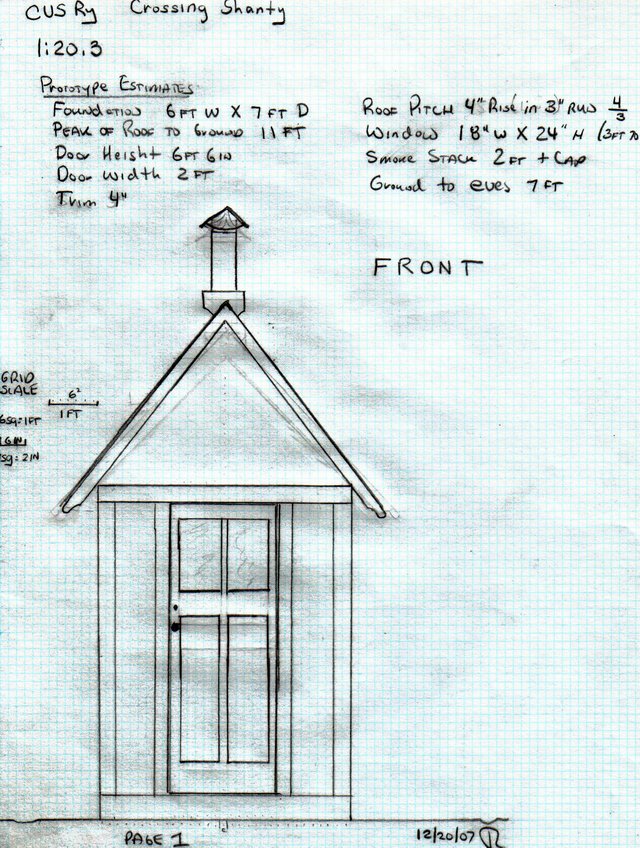 CUS Ry Crossing Shanty
1:20.3
Prototype Estimates
Foundation 6 FT W X 7 FT D
Peak of Roof to Ground 11 FT
Door Height 6FT 6IN
Door Width 2 FT
Trim 4"
Roof Pitch 4" Rise in 3" Run 4/3
Window 18"W X 24"H (3FT
Smoke Stack 2 FT + Cap
Ground to eves 7 FT
FRONT
GRID
SCALE
6sq=1FT
sq=2IN
1FT
PAGE 1
12/20/07